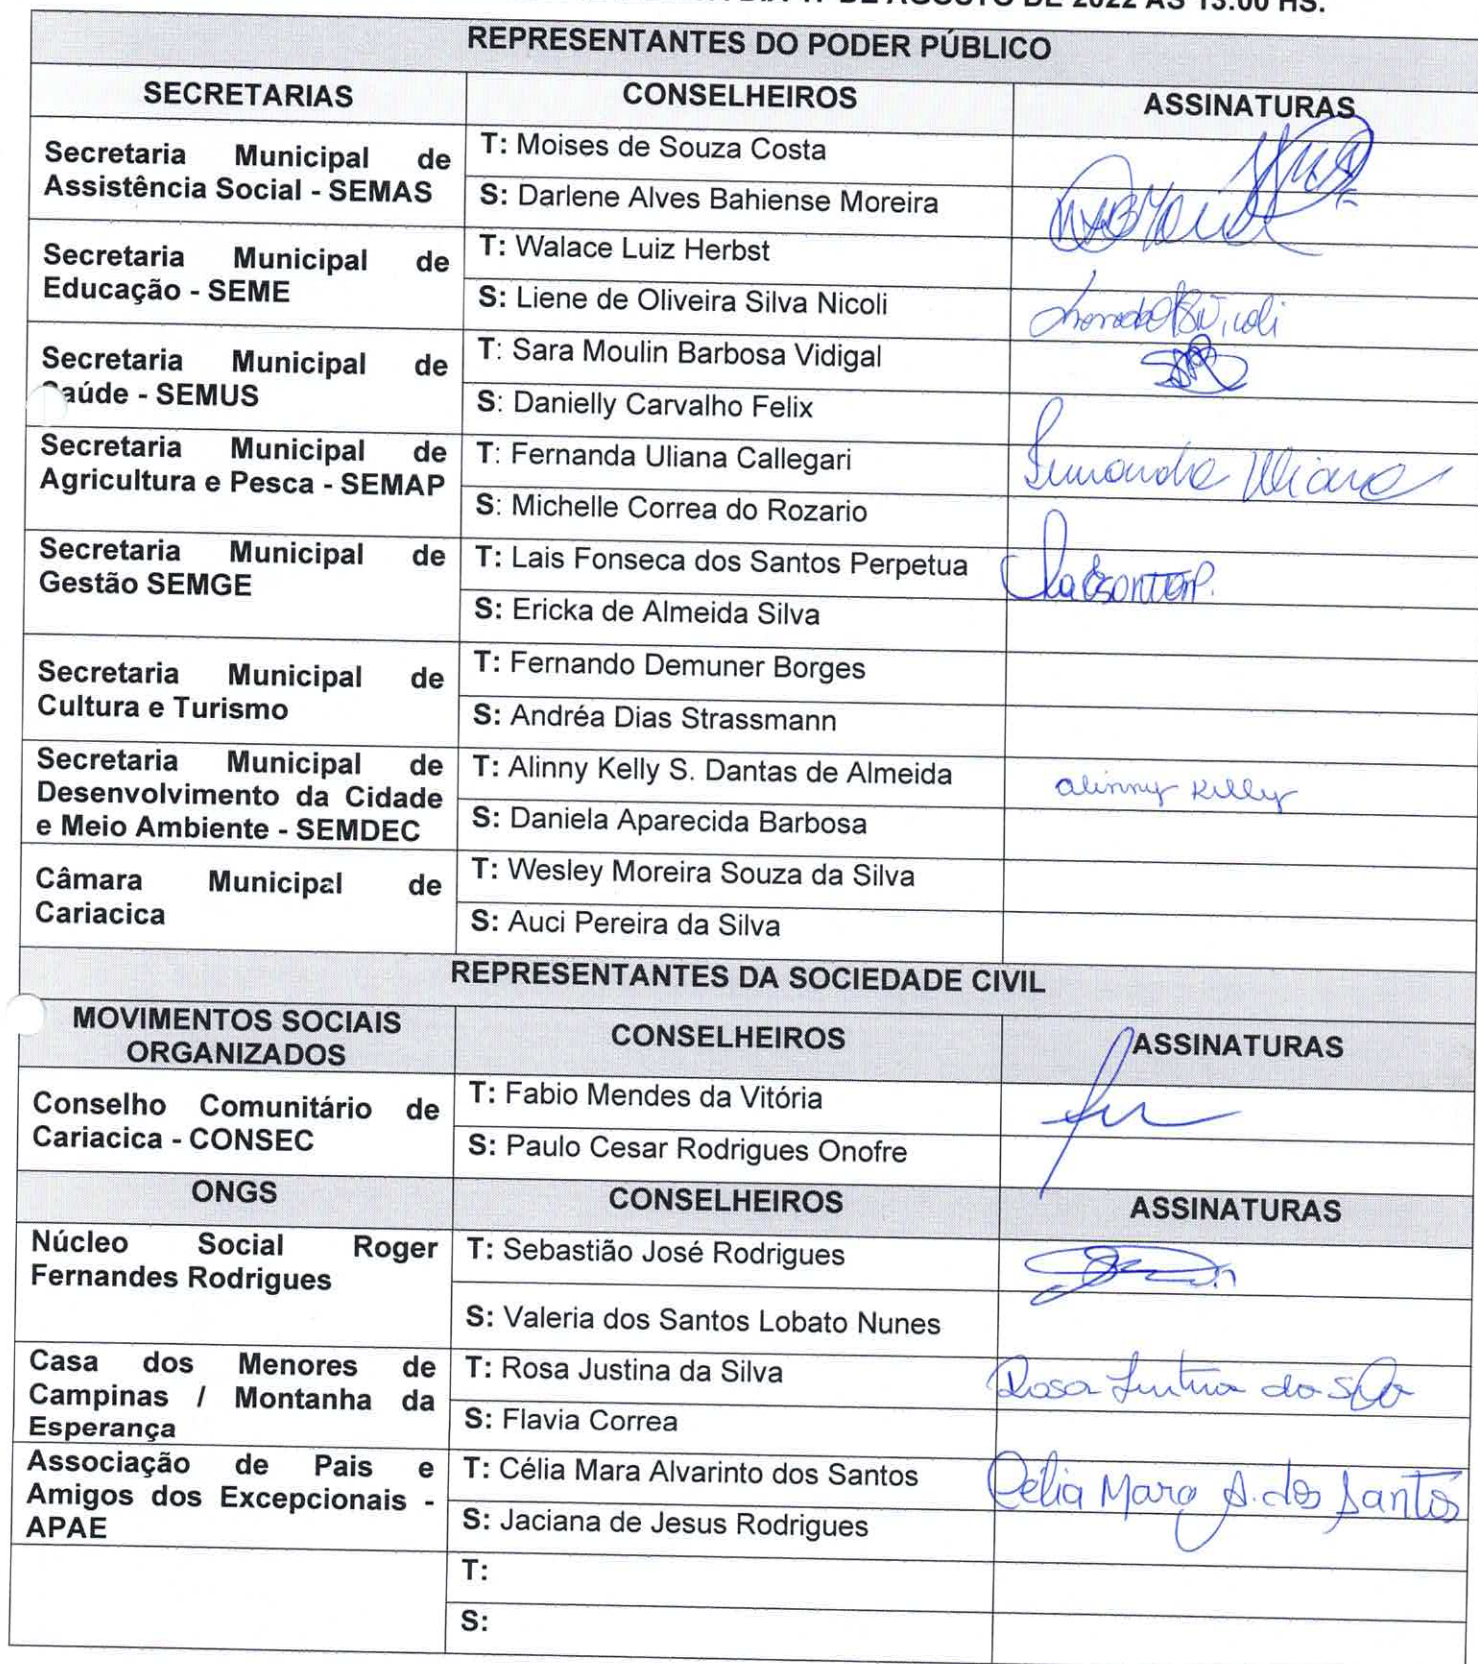 DE AGOSTO DE 2022 ÀS 13:00 HS.
REPRESENTANTES DO PODER PÚBLICO
SECRETARIAS CONSELHEIROS ASSINATURAS
Secretaria Municipal de
Assistência Social - SEMAS
T: Moises de Souza Costa
S: Darlene Alves Bahiense Moreira
Secretaria Municipal de
Educação - SEME
T: Walace Luiz Herbst
S: Liene de Oliveira Silva Nicoli
Secretaria Municipal de
Saúde - SEMUS
T: Sara Moulin Barbosa Vidigal
S: Danielly Carvalho Felix
Secretaria Municipal de
Agricultura e Pesca - SEMAP
T: Fernanda Uliana Callegari
Fernanda Uliana
S: Michelle Correa do Rozario
Secretaria Municipal de
Gestão SEMGE
T: Lais Fonseca dos Santos Perpetua
S: Ericka de Almeida Silva
Secretaria Municipal de
Cultura e Turismo
T: Fernando Demuner Borges
S: Andréa Dias Strassmann
Secretaria Municipal de
Desenvolvimento da Cidade
e Meio Ambiente - SEMDEC
T: Alinny Kelly S. Dantas de Almeida
alinny Kelly
S: Daniela Aparecida Barbosa
Câmara Municipal de
Cariacica
T: Wesley Moreira Souza da Silva
S: Auci Pereira da Silva
REPRESENTANTES DA SOCIEDADE CIVIL
MOVIMENTOS SOCIAIS
ORGANIZADOS
CONSELHEIROS ASSINATURAS
Conselho Comunitário de
Cariacica - CONSEC
T: Fabio Mendes da Vitória
S: Paulo Cesar Rodrigues Onofre
ONGS CONSELHEIROS ASSINATURAS
Núcleo Social Roger
Fernandes Rodrigues
T: Sebastião José Rodrigues
S: Valeria dos Santos Lobato Nunes
Casa dos Menores de
Campinas / Montanha da
Esperança
T: Rosa Justina da Silva
Rosa Justina da Silva
S: Flavia Correa
Associação de Pais e
Amigos dos Excepcionais -
APAE
T: Célia Mara Alvarinto dos Santos
Célia Mara A. dos Santos
S: Jaciana de Jesus Rodrigues
T:
S: